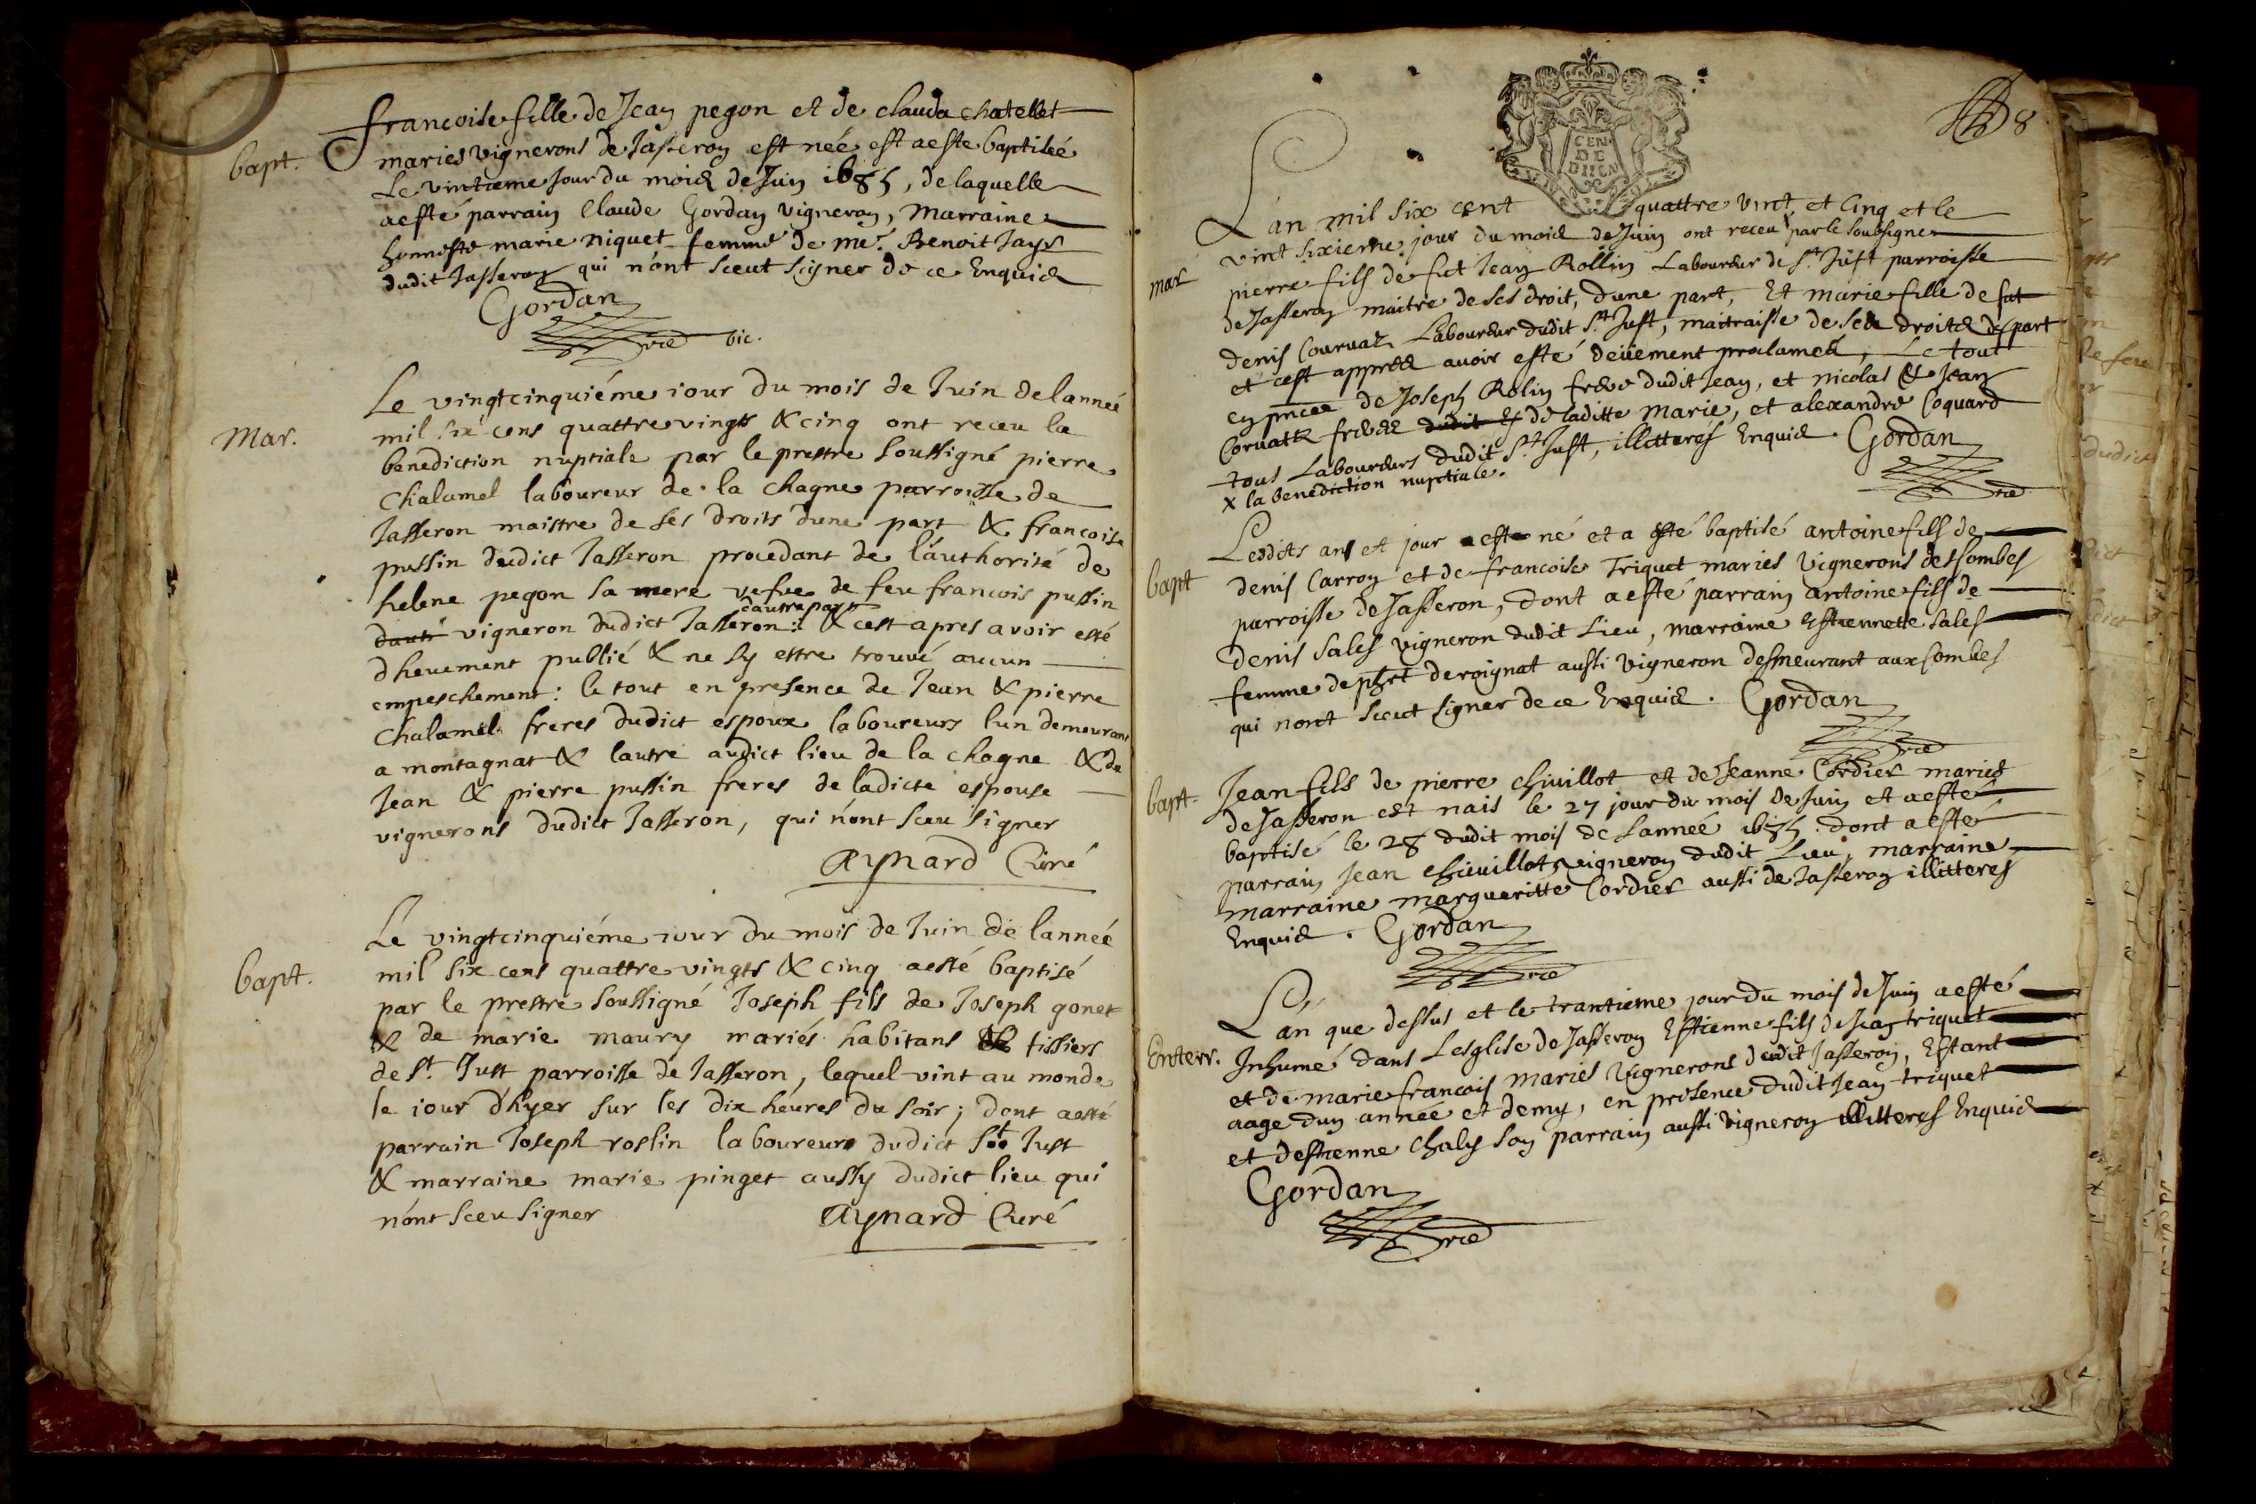 bapt.
francoise fille de Jean pegon et de clauda chatellet
maries vignerons de Jasseron est neé est aeste baptiseé
Le vintieme Jour du moid de Juin 1685, de laquelle
aesté parrain Claude Gordan vigneron, Marraine
honneste marie niquet femme de me. Benoit Jays
dudit Jasseron qui n'ont sceut signer de ce Enquid
Gordan
vic.
Mar.
Le vingtcinquiéme iour du mois de Juin de lanneé
mil six cens quattre vingts & cinq ont receu la
benediction nuptiale par le prestre soussigné pierre
Chalamel laboureur de la chagne parroisse de
Jasseron maistre de ses droits dune part & francoise
pussin dudict Jasseron procedant de l'authorité de
helene pegon sa mere vefue de feu francois pussin
dautr vigneron dudict Jasseron: dautre part & cest apres avoir esté
dheuement publié & ne sy estre trouvé aucun
empeschement: le tout en presence de Jean & pierre
Chalamel freres dudict espoux laboureurs lun demeurant
a montagnat & lautre audict lieu de la chagne & de
Jean & pierre pussin freres de ladicte espouse
vignerons dudict Jasseron, qui n'ont sceu signer
Aynard Curé
bapt.
Le vingtcinquiéme iour du mois de Juin de lanneé
mil six cens quattre vingts & cinq aesté baptisé
par le prestre soussigné Joseph fils de Joseph gonet
& de marie maury mariés habitans tissiers
de St. Just parroisse de Jasseron, lequel vint au monde
le iour d'hyer sur les dix heures du soir; dont aesté
parrain Joseph roslin laboureur dudict St Just
& marraine marie pinget aussy dudict lieu qui
n'ont sceu signer
Aynard Curé
8
GEN
DE
DIION
mar
L'an mil six cent quattre vint et Cinq et le
vint sixieme jour du moid de Juin ont receu x par le soubsigne
pierre fils de fut Jean Rollin Laboureur de St Just parroisse
de Jasseron maitre de ses droit, dune part, Et marie fille de fut
denis Courvat Laboureur dudit St Just, maitraisse de sed droitd dpart
et cest appred avoir esté deüement proclamed, Le tout
en pncee de Joseph Rolin frere dudit Jean, et nicolas & Jean
Corvatz frered dudit Et de laditte Marie, et alexandre Coquard
tous Laboureurs dudit St Just, illitterés Enquid. Gordan
x la benediction nuptiale.
bapt
Lesdits an et jour est né et a esté baptisé antoine fils de
denis Carron et de francoise Triquet maries vignerons des Combes
parroisse de Jasseron, dont aesté parrain antoine fils de
denis Sales vigneron dudit Lieu, marraine Estiennette Sales
femme de phrt deroignat aussi vigneron desmeurant aux Combes
qui nont sceut signer de ce Enquid. Gordan
bapt.
Jean fils de pierre chivillot et de Jeanne Cordier maries
de Jasseron est nais le 27 jour du mois de Juin et aesté
baptisé le 28 dudit mois de Lanneé 1685. dont aesté
parrain Jean chivillot vigneron dudit Lieu, marraine
marraine margueritte Cordier aussi de Jasseron illitteres
Enquid. Gordan
Enterr.
L'an que dessus et le trantieme jour du mois de Juin aesté
Inhumé dans Lesglise de Jasseron Estienne fils de Jean triquet
et de marie francois maries vignerons dudit Jasseron, Estant
aage dun anneé et demy, en presence dudit Jean triquet
et destienne Chaly son parrain aussi vigneron illitteres Enquid
Gordan